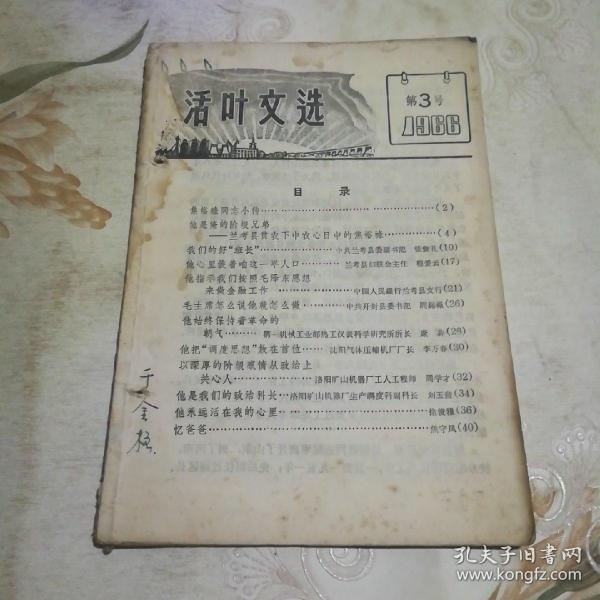 活叶文选
第3号
1966
目录
焦裕禄同志小传……(2)
他是俺的阶级兄弟
——兰考县贫农下中农心目中的焦裕禄……(4)
我们的好“班长”……中共兰考县委副书记 张钦礼(10)
他心里装着咱这一半人口……兰考县妇联会主任 程爱云(17)
他指示我们按照毛泽东思想
来做金融工作……中国人民银行兰考县支行(21)
毛主席怎么说他就怎么做……中共开封县委书记(26)
他始终保持着革命的
朝气……第一机械工业部热工仪表科学研究所所长(28)
他把“调度思想”放在首位……沈阳气体压缩机厂厂长 李万春(30)
以深厚的阶级感情从政治上
关心人……洛阳矿山机器厂工人工程师 周学才(32)
他是我们的政治科长……洛阳矿山机器厂生产调度科副科长(34)
他永远活在我的心里……徐俊雅(36)
忆爸爸……焦守凤(40)
孔夫子旧书网
www.kongfz.com